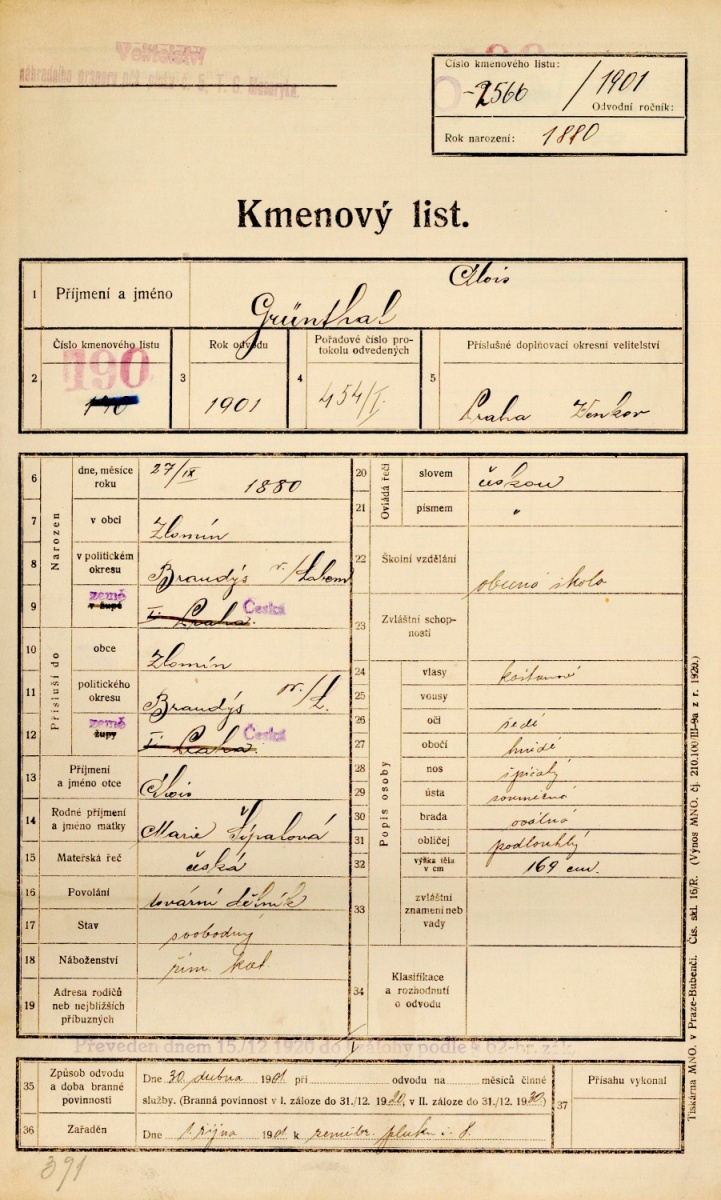 Velitelství
náhradního praporu pěš. pluku č. 5. T. G. Masaryka.
Číslo kmenového listu:
2566 / 1901
Odvodní ročník:
Rok narození: 1880
Kmenový list.
1 Příjmení a jméno Grünthal Alois
2 Číslo kmenového listu 190
3 Rok odvodu 1901
4 Pořadové číslo protokolu odvedených 454/I.
5 Příslušné doplňovací okresní velitelství Praha Venkov
Narozen
6 dne, měsíce roku 27/IX 1880
7 v obci Zlonín
8 v politickém okresu Brandýs n./Labem
9 země v župě I. Praha. Česká
Přísluší do
10 obce Zlonín
11 politického okresu Brandýs n./L.
12 země župy I. Praha. Česká
13 Příjmení a jméno otce Alois
14 Rodné příjmení a jméno matky Marie Šípalová
15 Mateřská řeč česká
16 Povolání tovární dělník
17 Stav svobodný
18 Náboženství řím. kat.
19 Adresa rodičů neb nejbližších příbuzných
Ovládá řeči
20 slovem českou
21 písmem "
22 Školní vzdělání obecná škola
23 Zvláštní schopnosti
Popis osoby
24 vlasy kaštanové
25 vousy
26 oči šedé
27 obočí hnědé
28 nos špičatý
29 ústa souměrná
30 brada oválná
31 obličej podlouhlý
32 výška těla v cm 169 cm.
33 zvláštní znamení neb vady
34 Klasifikace a rozhodnutí o odvodu
Převeden dnem 15./12 1920 do I. zálohy podle § 62-br. zák.
35 Způsob odvodu a doba branné povinnosti
Dne 30. dubna 1901 při odvodu na měsíců činné
služby. (Branná povinnost v I. záloze do 31./12. 1920, v II. záloze do 31./12. 1930.)
36 Zařaděn Dne 1. října 1901 k zeměbr. pluku č. 8.
37 Přísahu vykonal
391
Tiskárna MNO. v Praze-Bubenči. Čís. skl. 16/R. (Výnos MNO. čj. 210.100 III-9a z r. 1920.)